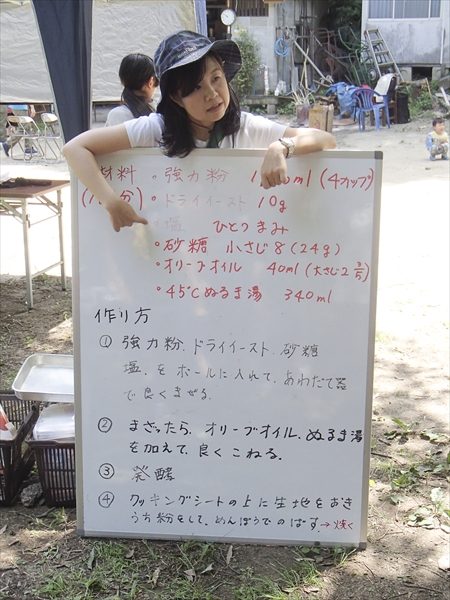 材料 ・強力粉 1 ml (4カップ)
分) ・ドライイースト 10g
塩 ひとつまみ
・砂糖 小さじ8 (24g)
・オリーブオイル 40ml (大さじ2 2/3)
・45℃ぬるま湯 340ml
作り方
① 強力粉、ドライイースト、砂糖
塩、をボールに入れて、あわだて器
で良くまぜる。
② まざったら、オリーブオイル、ぬるま湯
を加えて、良くこねる。
③ 発酵
④ クッキングシートの上に生地をおき
うち粉をして、めんぼうでのばす。→焼く